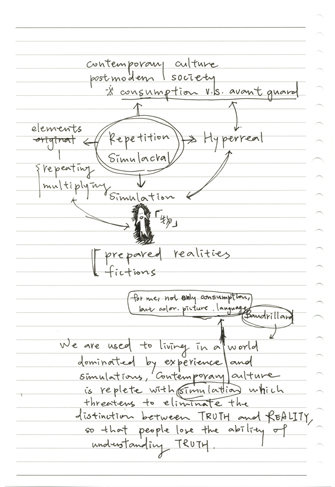 contemporary culture
postmodern society
※ consumption v.s. avant guard
elements
original
Repetition
Simulacral
Hyperreal
repeating
multiplying
Simulation
「物」
prepared realities
fictions
for me, not only consumption,
but color, picture, language
Baudrillard
We are used to living in a world
dominated by experience and
simulations, Contemporary culture
is replete with simulation which
threatens to eliminate the
distinction between TRUTH and REALITY,
so that people lose the ability of
understanding TRUTH.